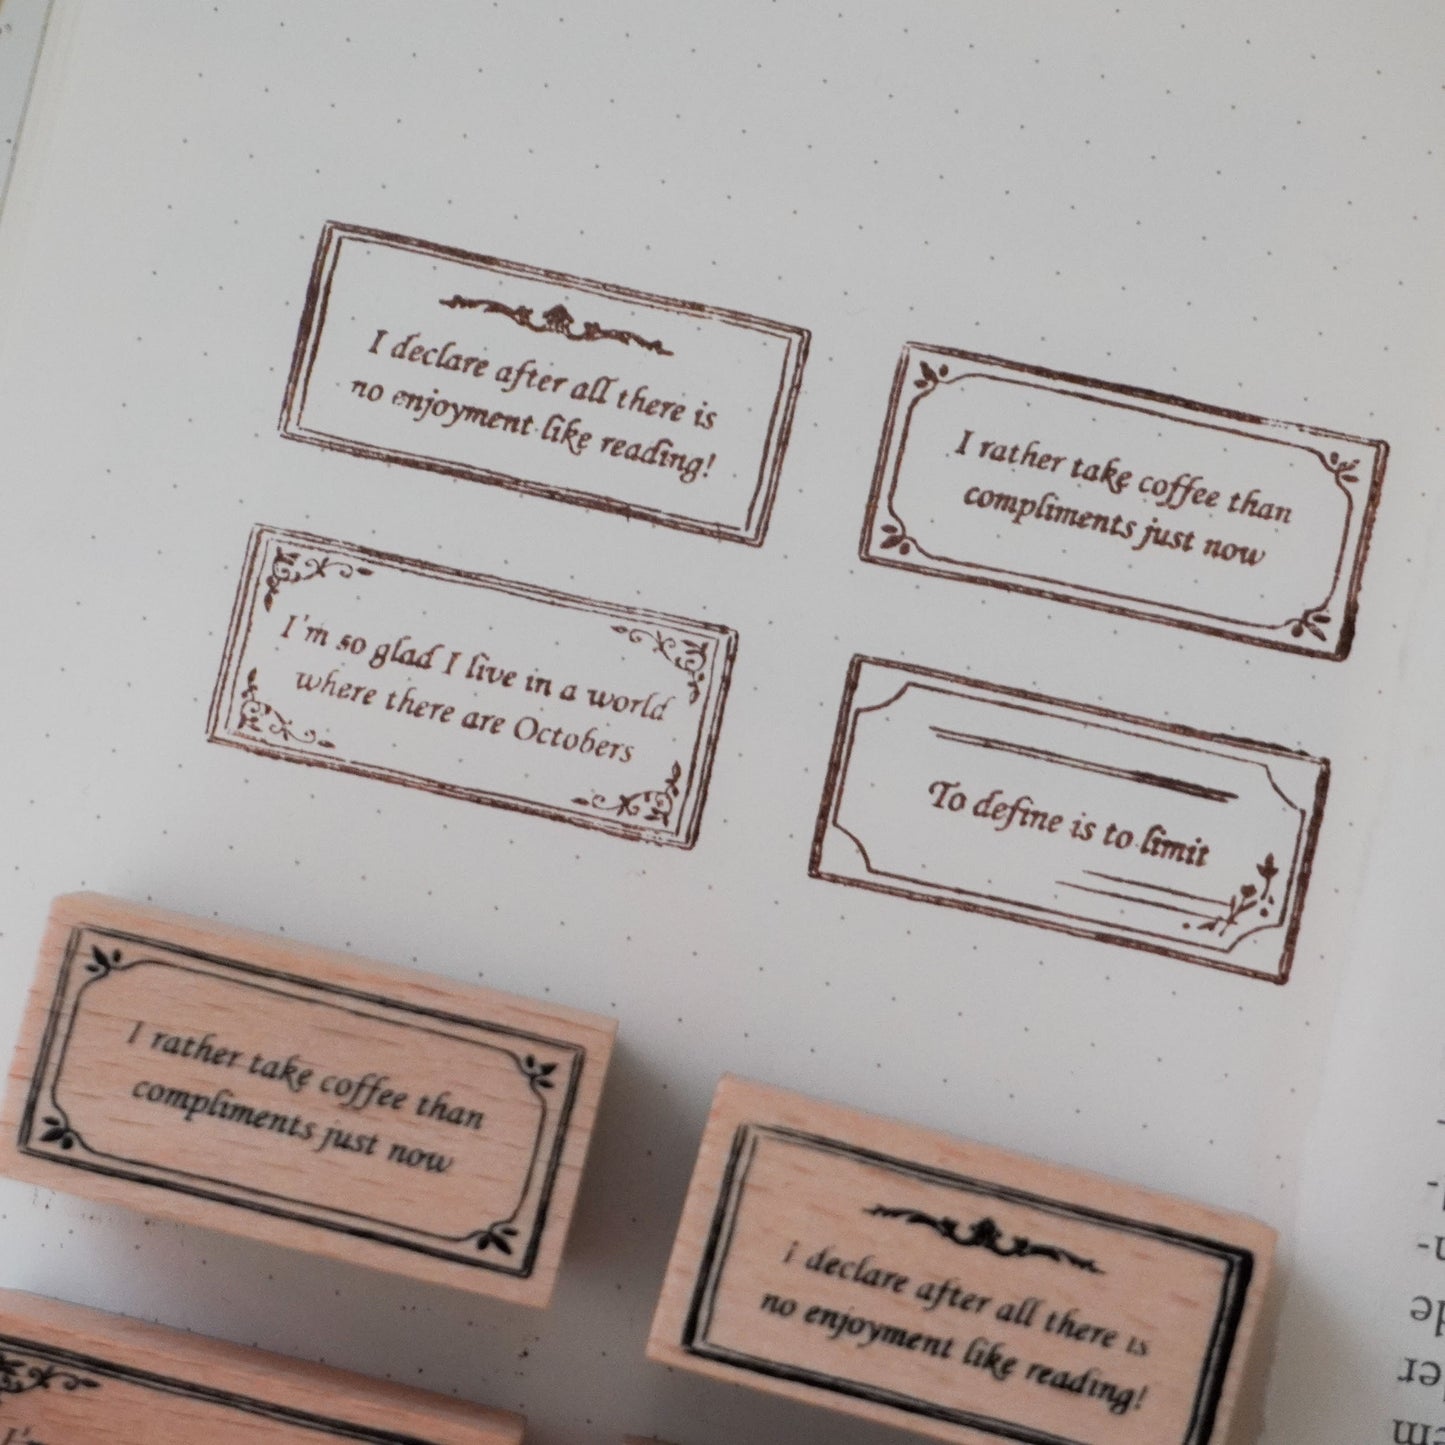 I declare after all there is
no enjoyment like reading!
I rather take coffee than
compliments just now
I'm so glad I live in a world
where there are Octobers
To define is to limit
I rather take coffee than
compliments just now
i declare after all there is
no enjoyment like reading!
I'm